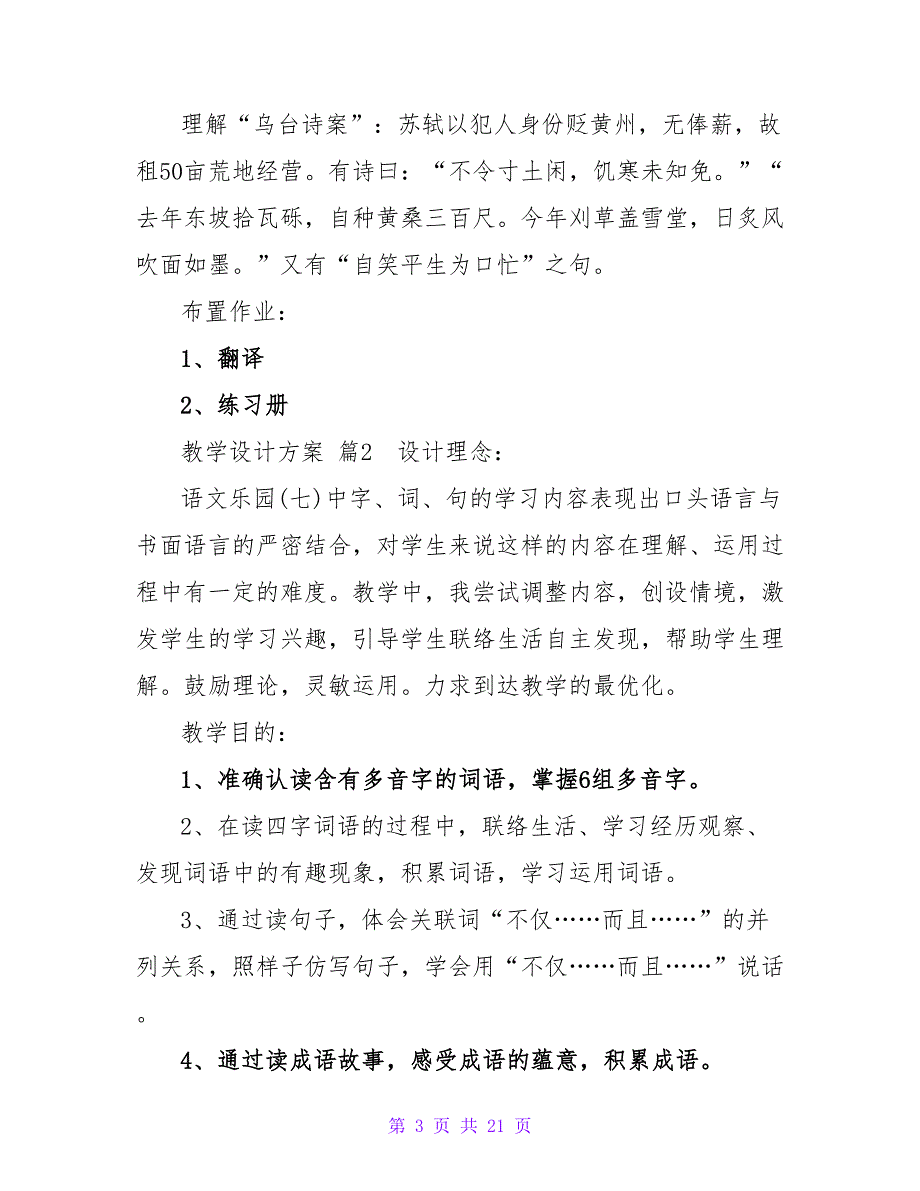 理解“乌台诗案”：苏轼以犯人身份贬黄州，无俸薪，故
租50亩荒地经营。有诗曰：“不令寸土闲，饥寒未知免。”“
去年东坡拾瓦砾，自种黄桑三百尺。今年刈草盖雪堂，日炙风
吹面如墨。”又有“自笑平生为口忙”之句。
布置作业：
1、翻译
2、练习册
教学设计方案 篇2　设计理念：
语文乐园(七)中字、词、句的学习内容表现出口头语言与
书面语言的严密结合，对学生来说这样的内容在理解、运用过
程中有一定的难度。教学中，我尝试调整内容，创设情境，激
发学生的学习兴趣，引导学生联络生活自主发现，帮助学生理
解。鼓励理论，灵敏运用。力求到达教学的最优化。
教学目的：
1、准确认读含有多音字的词语，掌握6组多音字。
2、在读四字词语的过程中，联络生活、学习经历观察、
发现词语中的有趣现象，积累词语，学习运用词语。
3、通过读句子，体会关联词“不仅……而且……”的并
列关系，照样子仿写句子，学会用“不仅……而且……”说话
。
4、通过读成语故事，感受成语的蕴意，积累成语。
第 3 页 共 21 页